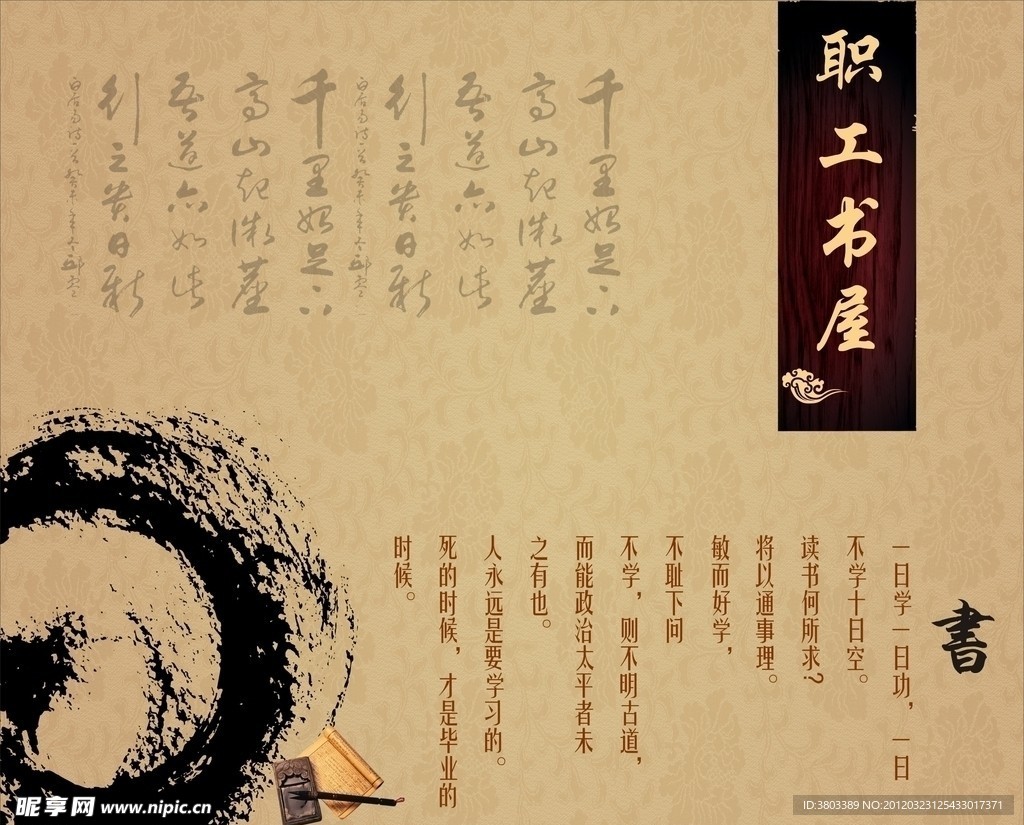 职工书屋
千里始足下
高山起微尘
吾道亦如此
行之贵日新
千里始足下
高山起微尘
吾道亦如此
行之贵日新
書
一日学一日功，一日
不学十日空。
读书何所求？
将以通事理。
敏而好学，
不耻下问
不学，则不明古道，
而能政治太平者未
之有也。
人永远是要学习的。
死的时候，才是毕业的
时候。
昵享网 www.nipic.cn
ID:3803389 NO:20120323125433017371